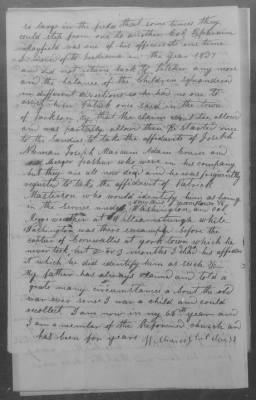 so large in the field that some times they
could step from one to another Col Ephraim
Mayfield was one of his officers at one time
I moved to Indiana in the year 1837
and did not return back to father any more
and the balance of the children
in different directions so he had no one to
assist him Patrick once said in the town
of Jackson Ky that the claim
and was partially allown then he started me
to the Sandies to take the affidavits of Josiah
Joseph Adam
and who were in his company
but they are all now dead and he was properly
to take the affidavit of Patrick
Masterson who would identify him as being
in the service and Washington and
at Williamsburgh while
Washington was there before the
capter of Cornwallis at york town which he
never took but 2 or 3 months I had his affidav
it which he did identify him as such
My father has always claim and told a
grate many circumstances about the old
war ever sence I was a child and could
recollect I am now in my 66th year and
I am a member of the Reformed church and
has been for years